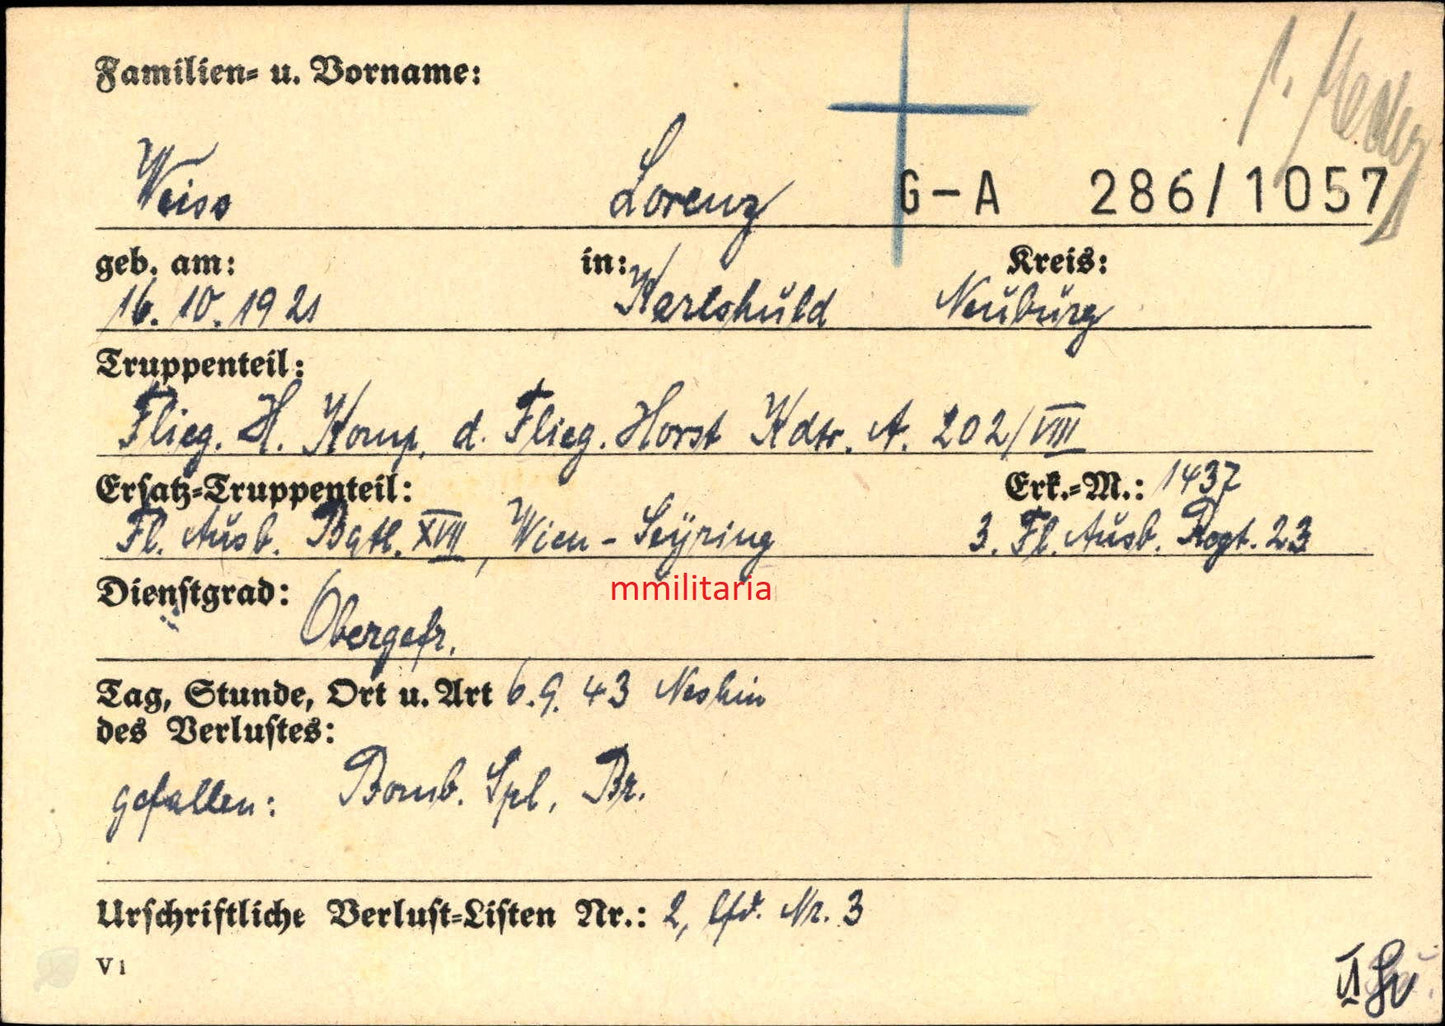 Familien- u. Vorname:
Weiss Lorenz G-A 286/1057
geb. am: in: Kreis:
16. 10. 1921 Karlshuld Neuburg
Truppenteil:
Flieg. H. Komp. d. Flieg. Horst Kdtr. A. 202/VIII
Ersatz-Truppenteil: Erk.-M.: 1437
Fl. Ausb. Rgtl. XVII, Wien-Seyring 3. Fl. Ausb. Regt. 23
mmilitaria
Dienstgrad:
Obergefr.
Tag, Stunde, Ort u. Art 6.9.43 Neshin
des Verlustes:
gefallen: Bomb. Spl. Br.
Urschriftliche Verlust-Listen Nr.: 2, lfd. Nr. 3
V 1